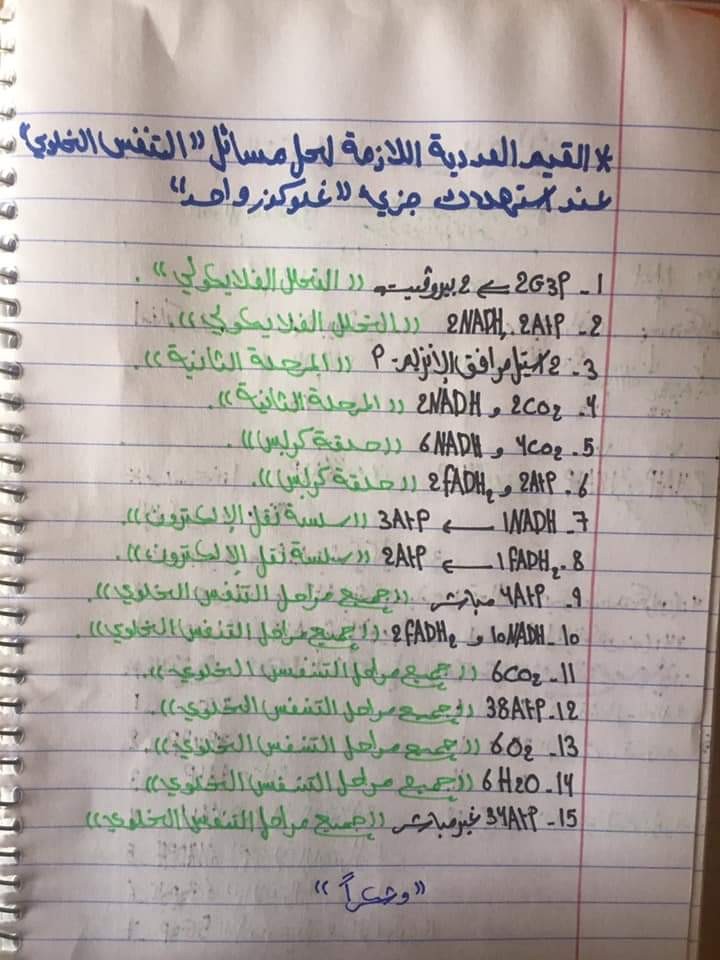 * القيم العددية اللازمة لحل مسائل "التنفس الخلوي"
عند استهلاك جزيء "غلوكوز واحد"
1- 2G3P ← 2 بيروفيت "التحلل الغلايكولي".
2- 2NADH, 2ATP "التحلل الغلايكولي".
3- 2 استيل مرافق الإنزيم-P "المرحلة الثانية".
4- 2CO₂ و 2NADH "المرحلة الثانية".
5- 4CO₂ و 6NADH "حلقة كربس".
6- 2ATP و 2FADH₂ "حلقة كربس".
7- 1NADH ← 3ATP "سلسة نقل الإلكترون".
8- 1FADH₂ ← 2ATP "سلسة نقل الإلكترون".
9- 4ATP مباشر "جميع مراحل التنفس الخلوي".
10- 10NADH و 2FADH₂ "جميع مراحل التنفس الخلوي".
11- 6CO₂ "جميع مراحل التنفس الخلوي".
12- 38ATP "جميع مراحل التنفس الخلوي".
13- 6O₂ "جميع مراحل التنفس الخلوي".
14- 6H2O "جميع مراحل التنفس الخلوي".
15- 34ATP غير مباشر "جميع مراحل التنفس الخلوي"
"وشكراً"